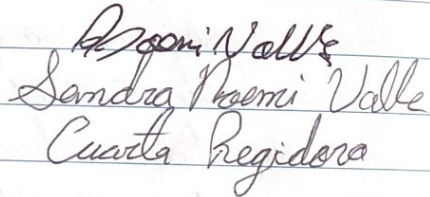 Noemi Valle
Sandra Noemi Valle
Cuarta Regidora